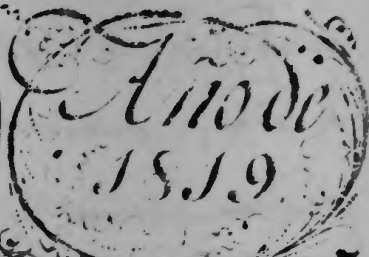 Año de
1819